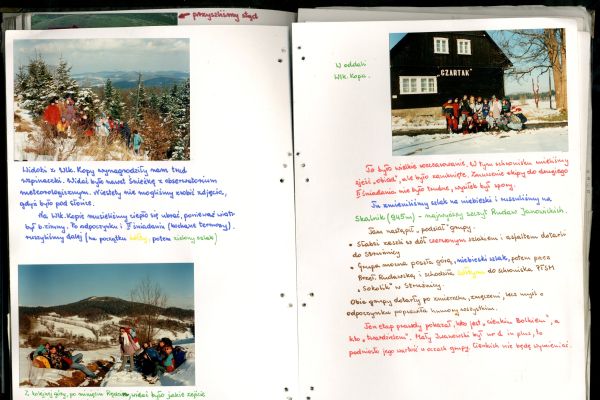 przyszliśmy stąd
Widoki z Wlk. Kopy wynagrodziły nam trud
wspinaczki. Widać było nawet Śnieżkę z obserwatorium
meteorologicznym. Niestety nie mogliśmy zrobić zdjęcia,
gdyż było pod słońce.
Na Wlk. Kopie musieliśmy ciepło się ubrać, ponieważ wiatr
był b. zimny. Po odpoczynku i II śniadaniu (kochane termosy),
ruszyliśmy dalej (na początku żółty, potem zielony szlak)
Z kolejnej góry, po minięciu Rędzin, widać było jakie zejście
W oddali
Wlk. Kopa.
"CZARTAK"
To było wielkie rozczarowanie. W tym schronisku mieliśmy
zjeść "obiad", ale było zamknięte. Zmuszenie ekipy do drugiego
II śniadania nie było trudne, wysiłek był spory.
Tu zmieniliśmy szlak na niebieski i ruszyliśmy na
Skalnik (945m) - najwyższy szczyt Rudaw Janowickich.
Tam nastąpił "podział" grupy:
• Słabsi zeszli w dół czerwonym szlakiem i asfaltem dotarli
do Strużnicy
• Grupa mocna poszła górą, niebieski szlak, potem przez
Przeł. Rudawską i schodziła żółtym do schroniska PTSM
"Sokolik" w Strużnicy.
Obie grupy dotarły po zmierzchu, zmęczeni, lecz myśl o
odpoczynku poprawiła humory wszystkim.
Ten etap prawdy pokazał, kto jest "cienkim Bolkiem", a
kto "twardzielem". Mały Iwanowski był nr 1 in plus, to
podniosło jego wartość w oczach grupy. Cienkich nie będę wymieniać.